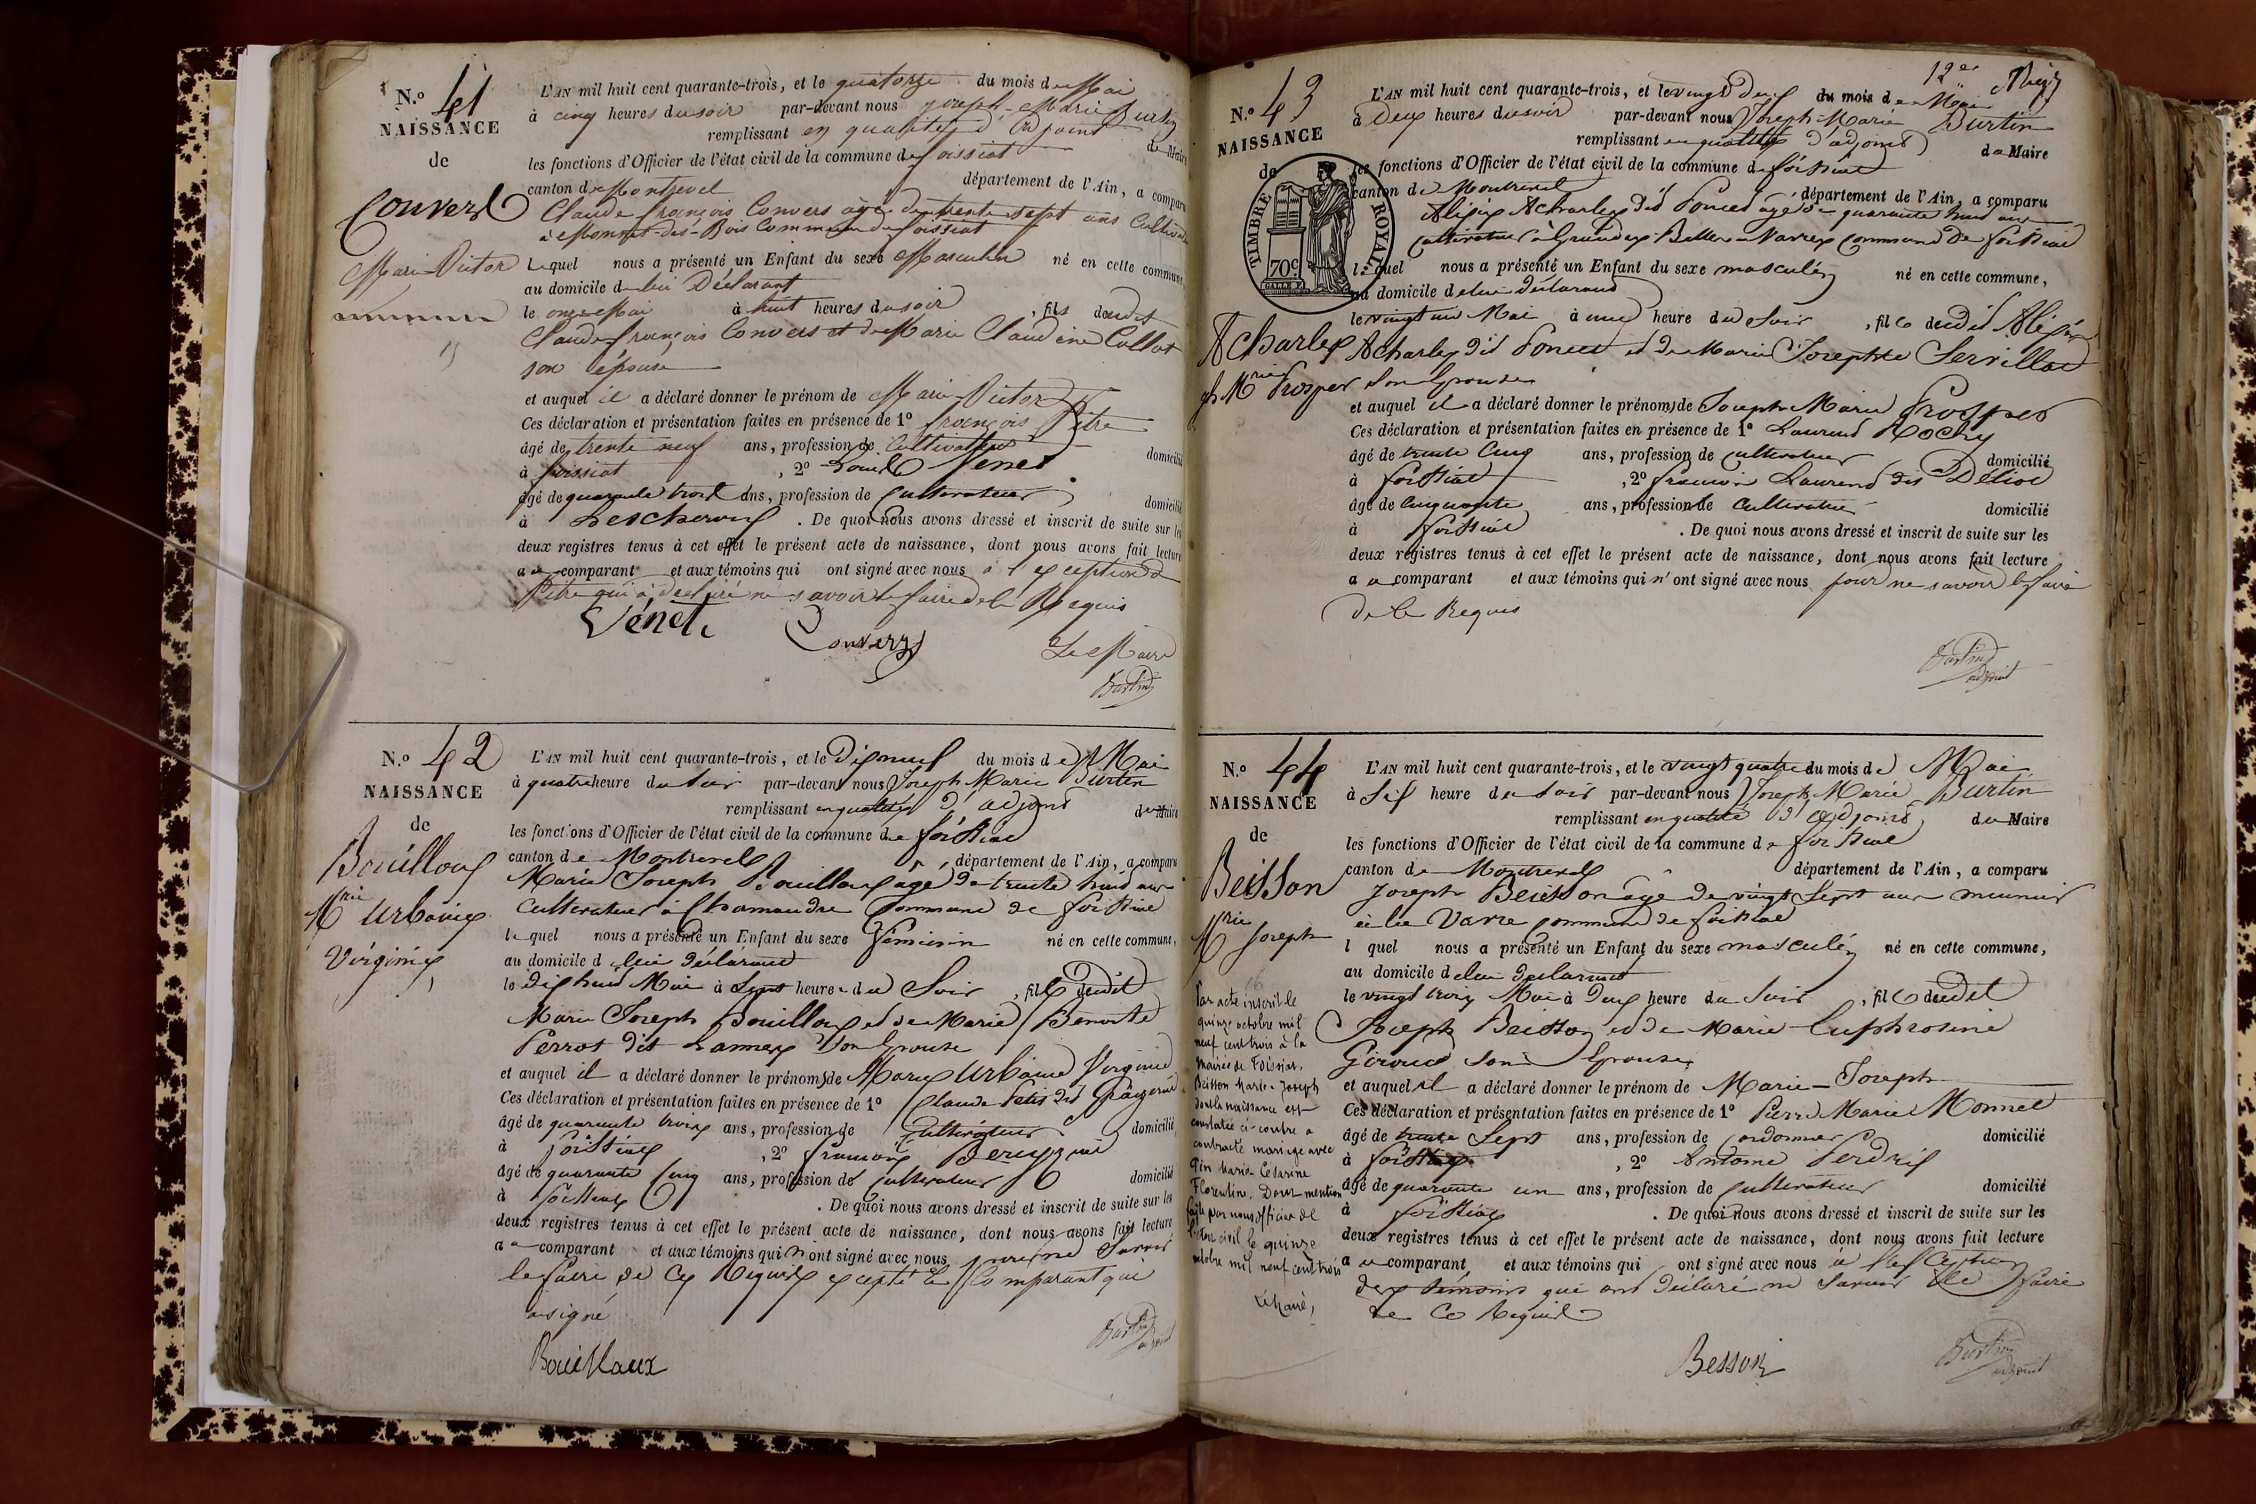 N.o 41
NAISSANCE
de
Convers
Marie Victor
L'AN mil huit cent quarante-trois, et le quatorze du mois de Mai
à cinq heures du soir par-devant nous Joseph-Marie Burtin
remplissant en qualité d'adjoint de Maire
les fonctions d'Officier de l'état civil de la commune de foissiat
canton de Montrevel département de l'Ain, a comparu
Claude françois Convers âgé de trente sept ans Cultivateur
à Bois Commune de foissiat
lequel nous a présenté un Enfant du sexe Masculin né en cette commune,
au domicile de lui Déclarant
le onze Mai à huit heures du soir, fils dudit
Claude françois Convers et de Marie Claudine Collot
son épouse
et auquel il a déclaré donner le prénom de Marie Victor
Ces déclaration et présentation faites en présence de 1º françois Pitre
âgé de trente neuf ans, profession de Cultivateur domicilié
à foissiat, 2º Venet
âgé de quarante trois ans, profession de Cultivateur domicilié
à Lescheroux. De quoi nous avons dressé et inscrit de suite sur les
deux registres tenus à cet effet le présent acte de naissance, dont nous avons fait lecture
au comparant et aux témoins qui ont signé avec nous à l'exception de
Pitre qui a déclaré ne savoir le faire de le Requis
Vénet Convers Le Maire
Burtin
N.o 42
NAISSANCE
de
Bouilloux
Mrie Urbanie
Virginie
L'AN mil huit cent quarante-trois, et le Dix neuf du mois de Mai
à quatre heure du Soir par-devant nous Joseph Marie Burtin
remplissant en qualité d'adjoint de Maire
les fonctions d'Officier de l'état civil de la commune de foissiat
canton de Montrevel département de l'Ain, a comparu
Marie Joseph Bouilloux âgé de trente huit ans
Cultivateur à Chamandre Commune de foissiat
lequel nous a présenté un Enfant du sexe féminin né en cette commune,
au domicile d lui déclarant
le dix huit Mai à Sept heures du Soir, fille dudit
Marie Joseph Bouilloux et de Marie Benoite
Perrot dit son Epouse
et auquel il a déclaré donner le prénom de Marie Urbanie Virginie
Ces déclaration et présentation faites en présence de 1º Claude dit
âgé de quarante trois ans, profession de Cultivateur domicilié
à foissiat, 2º francois
âgé de quarante cinq ans, profession de Cultivateur domicilié
à foissiat. De quoi nous avons dressé et inscrit de suite sur les
deux registres tenus à cet effet le présent acte de naissance, dont nous avons fait lecture
au comparant et aux témoins qui n'ont signé avec nous pour ne Savoir
le faire de ce Requis excepté le Comparant qui
a signé
Bouilloux Burtin
adjoint
12e
N.o 43
NAISSANCE
de
TIMBRE ROYAL
70c
Acharles
Jh Mrie Prosper
L'AN mil huit cent quarante-trois, et le vingt Deux du mois de Mai
à Deux heures du soir par-devant nous Joseph-Marie Burtin
remplissant en qualité d'adjoint de Maire
les fonctions d'Officier de l'état civil de la commune de foissiat
canton de Montrevel département de l'Ain, a comparu
Acharles dit Poncet âgé de quarante huit ans
cultivateur à commune de foissiat
lequel nous a présenté un Enfant du sexe masculin né en cette commune,
au domicile de lui déclarant
le vingt un Mai à une heure du Soir, fils dudit
Acharles dit Poncet et de Marie Josephte Servillat
son Epouse
et auquel il a déclaré donner le prénom de Joseph Marie Prosper
Ces déclaration et présentation faites en présence de 1º Laurent
âgé de trente Cinq ans, profession de cultivateur domicilié
à foissiat, 2º francois Laurent dit
âgé de cinquante ans, profession de cultivateur domicilié
à foissiat. De quoi nous avons dressé et inscrit de suite sur les
deux registres tenus à cet effet le présent acte de naissance, dont nous avons fait lecture
au comparant et aux témoins qui n'ont signé avec nous pour ne savoir le faire
de le Requis
Burtin
adjoint
N.o 44
NAISSANCE
de
Beisson
Mrie Joseph
Par acte inscrit le
quinze octobre mil
neuf cent trois à la
mairie de Foissiat,
Beisson Marie-Joseph
dont la naissance est
constatée ci-contre a
contracté mariage avec
Marie Césarine
Florentine. Dont mention
faite par nous officier de
l'état civil le quinze
octobre mil neuf cent trois
Le Maire,
L'AN mil huit cent quarante-trois, et le vingt quatre du mois de Mai
à Six heure du Soir par-devant nous Joseph Marie Burtin
remplissant en qualité d'adjoint de Maire
les fonctions d'Officier de l'état civil de la commune de foissiat
canton de Montrevel département de l'Ain, a comparu
Joseph Beisson âgé de vingt Sept ans meunier
à la Varre commune de foissiat
l quel nous a présenté un Enfant du sexe masculin né en cette commune,
au domicile de lui déclarant
le vingt trois Mai à Deux heure du Soir, fils dudit
Joseph Beisson et de Marie Euphrosine
Giroud son Epouse
et auquel il a déclaré donner le prénom de Marie-Joseph
Ces déclaration et présentation faites en présence de 1º Pierre Marie Monnet
âgé de trente Sept ans, profession de cordonnier domicilié
à foissiat, 2º Antoine Perdrix
âgé de quarante un ans, profession de cultivateur domicilié
à foissiat. De quoi nous avons dressé et inscrit de suite sur les
deux registres tenus à cet effet le présent acte de naissance, dont nous avons fait lecture
au comparant et aux témoins qui ont signé avec nous à l'exception
des témoins qui ont déclaré ne Savoir le faire
de ce Requis
Besson Burtin
adjoint